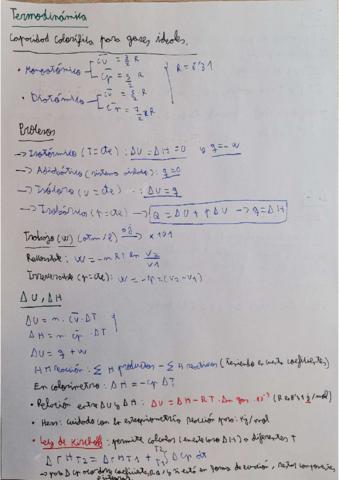 Termodinámica
Capacidad Calorífica para gases ideales.
• Monoatómico
Cv = 3/2 R
Cp = 5/2 R
R = 8'31
• Diatómico
Cv = 5/2 R
Cp = 7/2 R
Procesos
→ Isotérmico (T = cte): ΔU = ΔH = 0 y q = -w
→ Adiabático (sistema aislado): q = 0
→ Isócoro (v = cte): ΔU = q
→ Isobárico (p = cte) → Q = ΔU + P ΔV → q = ΔH
Trabajo (w) (atm/l) → x 101
Reversible: W = -nRT ln V2/V1
Irreversible (p = cte): W = -P = (V2 - V1)
ΔU, ΔH
ΔU = n · Cv · ΔT
ΔH = n · Cp · ΔT
ΔU = q + w
H reacción: Σ H productos - Σ H reactivos (teniendo en cuenta coeficientes)
En calorímetro: ΔH = -Cp ΔT
• Relación entre ΔU y ΔH: ΔU = ΔH - RT · Δn gas · 10⁻³
• Hess: cuidado con la estequiometría reacción para: KJ/mol
• Ley de Kirchoff: permite calcular ΔH a diferentes T
Δr H T2 = Δr H T1 + ∫ T2 T1 ΔCp dt